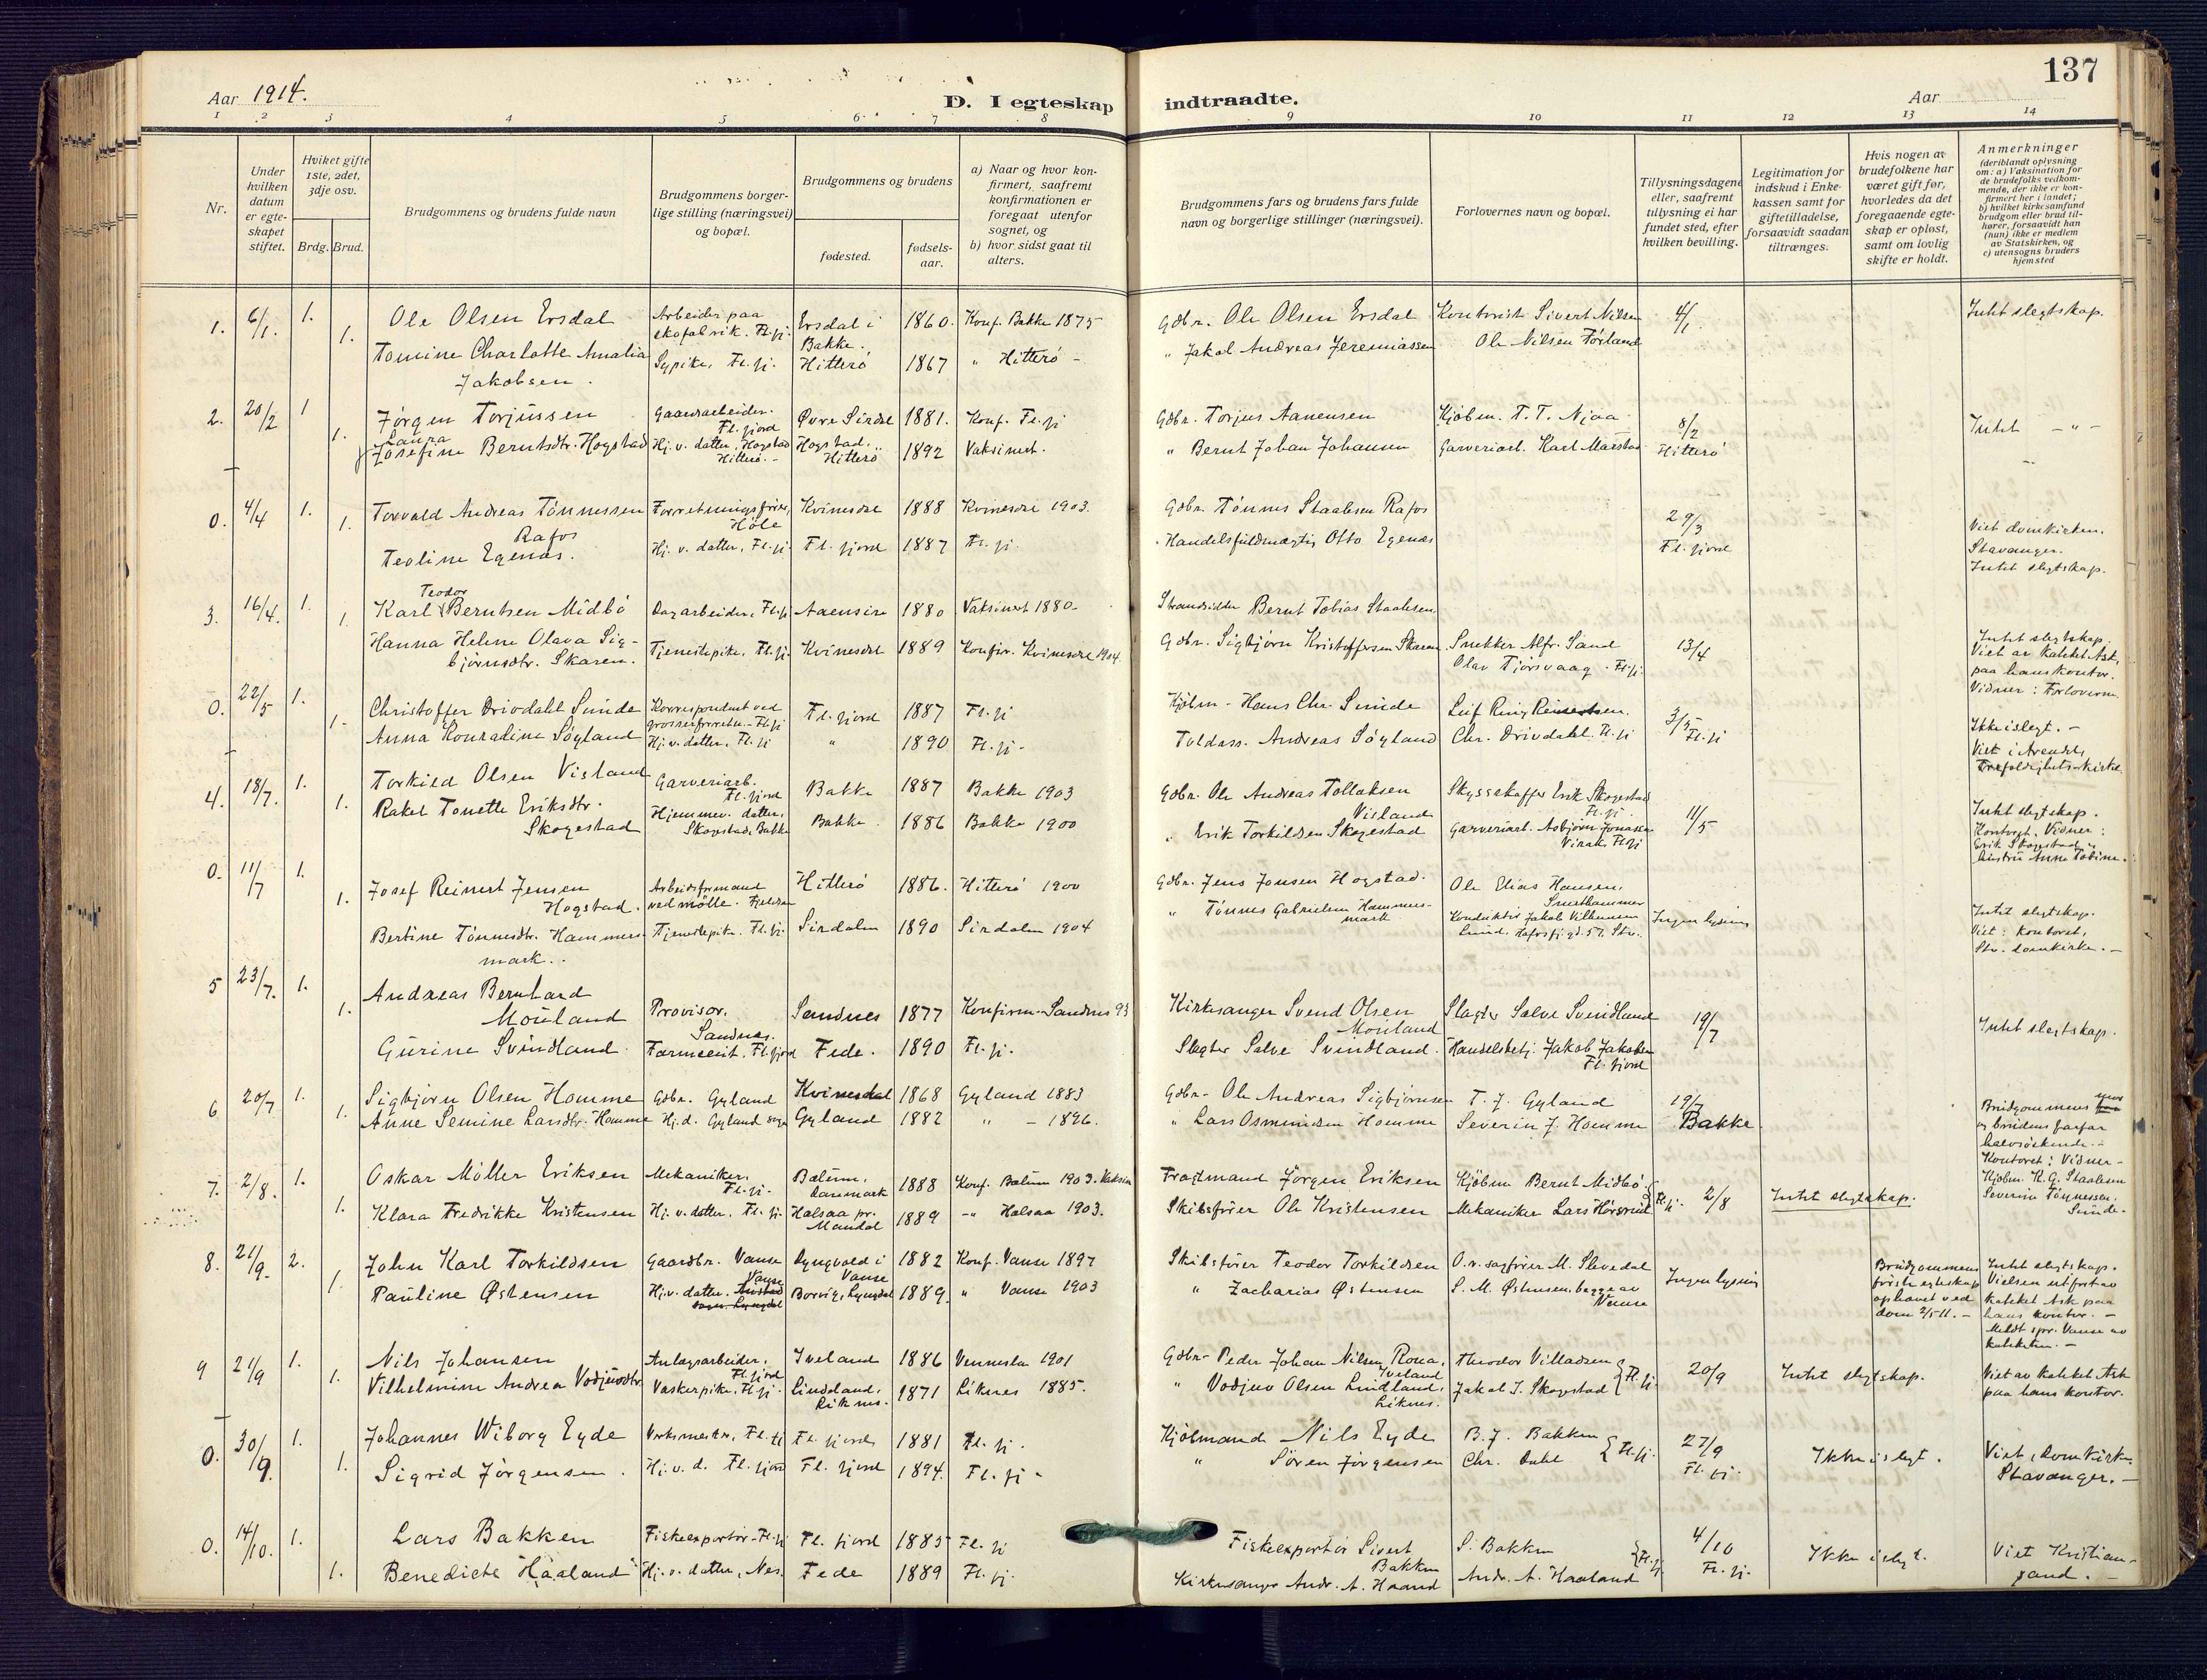 137
Aar 1914.
D. I egteskap indtraadte.
Aar
1 2 3 4 5 6 7 8 9 10 11 12 13 14
Nr.
Under hvilken datum er egteskapet stiftet.
Hviket gifte 1ste, 2det, 3dje osv.
Brdg. Brud.
Brudgommens og brudens fulde navn
Brudgommens borgerlige stilling (næringsvei) og bopæl.
Brudgommens og brudens
fødested.
fødselsaar.
a) Naar og hvor konfirmert, saafremt konfirmationen er foregaat utenfor sognet, og
b) hvor sidst gaat til alters.
Brudgommens fars og brudens fars fulde navn og borgerlige stillinger (næringsvei).
Forlovernes navn og bopæl.
Tillysningsdagene eller, saafremt tillysning ei har fundet sted, efter hvilken bevilling.
Legitimation for indskud i Enkekassen samt for giftetilladelse, forsaavidt saadan tiltrænges.
Hvis nogen av brudefolkene har været gift før, hvorledes da det foregaaende egteskap er opløst, samt om lovlig skifte er holdt.
Anmerkninger
(deriblandt oplysning om: a) Vaksination for de brudefolks vedkommende, der ikke er konfirmert her i landet;
b) hvilket kirkesamfund brudgom eller brud tilhører, forsaavidt han (hun) ikke er medlem av Statskirken, og
c) utensogns bruders hjemsted
1. 6/1. 1. Ole Olsen Ersdal Arbeider paa skofabrik. Fl.fj. Ersdal i Bakke. 1860. Konf. Bakke 1875 Gdbr. Ole Olsen Ersdal Kontorist Sivert Nilsen 4/1 Intet slegtskap.
1. Tomine Charlotte Amalia Jakobsen. Sypike, Fl.fj. Hitterø 1867 " Hitterø - " Jakob Andreas Jeremiassen Ole Nilsen Førland
2. 20/2 1 Jørgen Torjussen Gaardsarbeider. Fl.fjord Øvre Sirdal 1881. Konf. Fl.fj Gdbr. Torjus Aanensen Kjøbm. T. T. Njaa 8/2 Intet - " -
1. Laura Josefine Berntsdtr. Hogstad Hj. v. datter, Hogstad Hitterø. Hogstad, Hitterø 1892 Vaksinert. " Bernt Johan Johansen Garveriarb. Karl Marstad Hitterø
0. 4/4 1. Torvald Andreas Tønnessen Rafos Forretningsfører, Høle Kvinesdal 1888 Kvinesdal 1903. Gdbr. Tønnes Staalesen Rafos 29/3 Fl.fjord Viet domkirken. Stavanger.
1. Teoline Egenæs. Hj. v. datter, Fl.fj. Fl. fjord 1887 Fl. fj. Handelsfuldmægtig Otto Egenæs Intet slegtskap.
3. 16/4. 1. Karl Teodor Berntsen Midbø Dagarbeider, Fl.fj Aaensire 1880 Vaksinert 1880. Strandsidder Bernt Tobias Staalesen
1. Hanna Helene Olava Sigbjørnsdtr. Skaren. Tjenestepike, Fl.fj. Kvinesdal 1889 Konfir. Kvinesdal 1904. Gdbr. Sigbjørn Kristoffersen Skaren Snekker Alfr. Sand Olav Tjorsvaag. Fl.fj. 13/4 Intet slegtskap. Viet av kateket Ask, paa hans kontor. Vidner: Forloverne
0. 22/5 1. Christoffer Drivdahl Sunde Korrespondent ved grossererforretn. Fl.fj Fl. fjord 1887 Fl.fj Kjøbm. Hans Chr. Sunde Leif Ring Reinertsen. 3/5 Fl.fj Ikke i slegt. -
1. Anna Konradine Søyland Hj. v. datter, Fl.fj " 1890 Fl.fj. Toldass. Andreas Søyland Chr. Drivdahl. Fl.fj Viet i Arendal, Trefoldighets-kirke
4. 18/7. 1. Torkild Olsen Visland Garveriarb. Fl.fjord Bakke 1887 Bakke 1903 Gdbr. Ole Andreas Tollaksen Visland Skysskaffer Erik Skogestad Fl.fj. 11/5 Intet slegtskap.
1. Rakel Tonette Eriksdtr. Skogestad Hjemmev. datter, Skogstad, Bakke Bakke 1886 Bakke 1900 " Erik Torkildsen Skogestad Garveriarb. Asbjørn Jonassen Virak. Fl.fj Kontoret. Vidner: Erik Skogestad og hustru Anne Tobine.
0. 11/7 1. Josef Reinert Jensen Hogstad. Arbeidsformand ved mølle. Hitterø 1886. Hitterø 1900 Gdbr. Jens Jonsen Hogstad. Ole Elias Hansen,
1. Bertine Tønnesdtr. Hammersmark. Tjenestepike. Fl.fj. Sirdalen 1890 Sirdalen 1904 " Tønnes Gabrielsen Hammersmark Konduktør Jakob Vilhelmsen Lund, Hafrsfj.gd. 57. Stv. Ingen lysning Intet slegtskap. Viet: kontoret, Stv. domkirke. -
5 23/7. 1. Andreas Bernhard Mouland Provisor. Sandnes. Sandnes 1877 Konfirm. Sandnes 93 Kirkesanger Svend Olsen Mouland Slagter Salve Svindland 19/7 Intet slegtskap.
1. Gurine Svindland Farmceut. Fl.fjord Fede. 1890 Fl.fj. Slagter Salve Svindland. Handelsbetj. Jakob Jakobsen Fl.fjord
6 20/7 1. Sigbjørn Olsen Homme Gdbr. Gyland Kvinesdal 1868 Gyland 1883 Gdbr. Ole Andreas Sigbjørnsen T. J. Gyland 19/7 Bakke. Brudgommens mor og brudens farfar halvsøskende.
1. Anne Semine Larsdtr. Homme Hj.d. Gyland sogn Gyland 1882 " - 1896. " Lars Osmundsen Homme Severin J. Homme Kontoret: Vidner - Kjøbm. K. G. Staalesen Severin Tønnessen, Sunde.
7. 2/8. 1. Oskar Møller Eriksen Mekaniker, Fl.fj. Bælum, Danmark 1888 Konf. Bælum 1903. Vaksin Fragtmand Jørgen Eriksen Kjøbm Bernt Midbø Fl.fj. 2/8 Intet slegtskap.
1. Klara Fredrikke Kristensen Hj. v. datter, Fl.fj. Halsaa pr. Mandal 1889 " Halsaa 1903. Skibsfører Ole Kristensen Mekaniker Lars Hørsrud
8. 21/9. 2. John Karl Torkildsen Gaardbr. Vanse Lyngvold i Vanse 1882 Konf. Vanse 1897 Skibsfører Teodor Torkildsen O.r. sagfører M. Slevedal Ingen lysning Brudgommens første egteskap ophævet ved dom 2/5 11. - Intet slegtskap. Vielsen utført av kateket Ask paa hans kontor. - Meldt spr. Vanse av kateketen. -
1. Pauline Østensen Hj. v. datter. Vanse Borvig, Lyngdal 1889. " Vanse 1903 " Zacharias Østensen S. M. Østensen, begge av Vanse
9 21/9 1. Nils Johansen Anlægsarbeider, Fl.fjord Iveland 1886 Vennesla 1901 Gdbr. Peder Johan Nilsen Rona, Iveland Theodor Villadsen Fl.fj. 20/9 Intet slegtskap. Viet av kateket Ask paa hans kontor.
1. Vilhelmine Andrea Vodjuvsdtr. Vaskerpike, Fl.fj. Lindeland, Liknes. 1871 Liknes 1885. " Vodjuv Olsen Lindland, Liknes. Jakob I. Skogstad
0. 30/9. 1. Johannes Wiborg Eyde Verksmester, Fl.fj Fl. fjord 1881 Fl. fj. Kjøbmand Nils Eyde B. J. Bakken Fl.fj. 27/9 Fl. fj. Ikke i slegt. Viet, Domkirk. Stavanger. -
1. Sigrid Jørgensen. Hj. v. d. Fl.fjord Fl. fjord 1894. Fl. fj. " Søren Jørgensen Chr. Dahl
0. 14/10. 1. Lars Bakken Fiskeexportør - Fl.fj Fl. fjord 1885 Fl. fj Fiskeexportør Sivert Bakken S. Bakken Fl.fj 4/10 Fl. fj. Ikke i slegt. Viet Kristiansand. -
1. Benedicte Haaland Hj. v. datter, Nes. Fede 1889 Fl. fj. Kirkesanger Andr. A. Haand Andr. A. Haaland